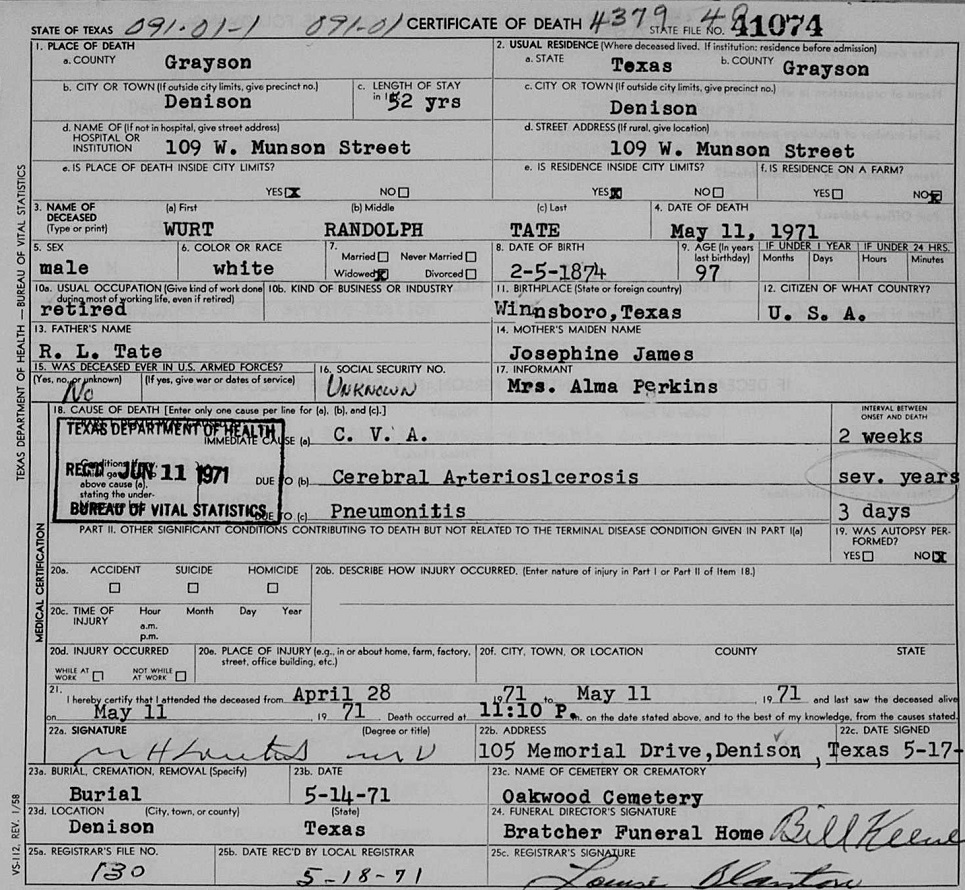 STATE OF TEXAS 091-01-1 091-01 CERTIFICATE OF DEATH 4379 STATE FILE NO. 41074
1. PLACE OF DEATH
a. COUNTY Grayson
2. USUAL RESIDENCE (Where deceased lived. If institution: residence before admission)
a. STATE Texas b. COUNTY Grayson
b. CITY OR TOWN (If outside city limits, give precinct no.) Denison
c. LENGTH OF STAY in 1b 52 yrs
c. CITY OR TOWN (If outside city limits, give precinct no.) Denison
d. NAME OF (If not in hospital, give street address) HOSPITAL OR INSTITUTION 109 W. Munson Street
d. STREET ADDRESS (If rural, give location) 109 W. Munson Street
e. IS PLACE OF DEATH INSIDE CITY LIMITS?
YES X NO
e. IS RESIDENCE INSIDE CITY LIMITS?
YES X NO
f. IS RESIDENCE ON A FARM?
YES NO X
3. NAME OF DECEASED (Type or print)
(a) First WURT (b) Middle RANDOLPH (c) Last TATE
4. DATE OF DEATH May 11, 1971
5. SEX male
6. COLOR OR RACE white
7. Married Never Married
Widowed X Divorced
8. DATE OF BIRTH 2-5-1874
9. AGE (In years last birthday) 97
IF UNDER 1 YEAR Months Days
IF UNDER 24 HRS. Hours Minutes
10a. USUAL OCCUPATION (Give kind of work done during most of working life, even if retired) retired
10b. KIND OF BUSINESS OR INDUSTRY
11. BIRTHPLACE (State or foreign country) Winnsboro,Texas
12. CITIZEN OF WHAT COUNTRY? U. S. A.
13. FATHER'S NAME R. L. Tate
14. MOTHER'S MAIDEN NAME Josephine James
15. WAS DECEASED EVER IN U.S. ARMED FORCES?
(Yes, no, or unknown) No (If yes, give war or dates of service)
16. SOCIAL SECURITY NO. UNKNOWN
17. INFORMANT Mrs. Alma Perkins
MEDICAL CERTIFICATION
18. CAUSE OF DEATH [Enter only one cause per line for (a), (b), and (c).]
INTERVAL BETWEEN ONSET AND DEATH
TEXAS DEPARTMENT OF HEALTH
REC'D JUN 11 1971
BUREAU OF VITAL STATISTICS
IMMEDIATE CAUSE (a) C. V. A. 2 weeks
above cause (a), stating the under-
DUE TO (b) Cerebral Arterioslcerosis sev. years
DUE TO (c) Pneumonitis 3 days
PART II. OTHER SIGNIFICANT CONDITIONS CONTRIBUTING TO DEATH BUT NOT RELATED TO THE TERMINAL DISEASE CONDITION GIVEN IN PART I(a)
19. WAS AUTOPSY PERFORMED?
YES NO X
20a. ACCIDENT SUICIDE HOMICIDE
20b. DESCRIBE HOW INJURY OCCURRED. (Enter nature of injury in Part I or Part II of Item 18.)
20c. TIME OF INJURY Hour Month Day Year
a.m.
p.m.
20d. INJURY OCCURRED
WHILE AT WORK NOT WHILE AT WORK
20e. PLACE OF INJURY (e.g., in or about home, farm, factory, street, office building, etc.)
20f. CITY, TOWN, OR LOCATION COUNTY STATE
21. I hereby certify that I attended the deceased from April 28 1971 to May 11, 1971 and last saw the deceased alive
on May 11 1971 Death occurred at 11:10 P.m. on the date stated above, and to the best of my knowledge, from the causes stated.
22a. SIGNATURE (Degree or title)
22b. ADDRESS 105 Memorial Drive,Denison ,Texas
22c. DATE SIGNED 5-17-
23a. BURIAL, CREMATION, REMOVAL (Specify) Burial
23b. DATE 5-14-71
23c. NAME OF CEMETERY OR CREMATORY Oakwood Cemetery
23d. LOCATION (City, town, or county) (State)
Denison Texas
24. FUNERAL DIRECTOR'S SIGNATURE
Bratcher Funeral Home Bill Keene
25a. REGISTRAR'S FILE NO. 130
25b. DATE REC'D BY LOCAL REGISTRAR 5-18-71
25c. REGISTRAR'S SIGNATURE Louise Blanton
TEXAS DEPARTMENT OF HEALTH — BUREAU OF VITAL STATISTICS
VS-112, REV. 1/58